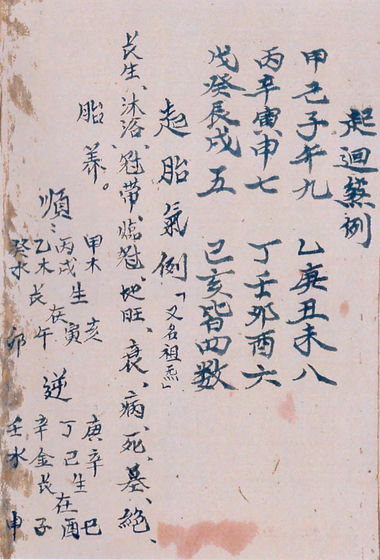 起迴例
甲己子午九　乙庚丑未八
丙辛寅申七　丁壬卯酉六
戊癸辰戌五　己亥皆四数
起胎氣例「又名祖炁」
長生、沐浴、冠帶、臨冠、地旺、衰、病、死、墓、絕、
胎養。
順：
甲木　亥
丙戊生在寅
乙木長　午
癸水　卯
逆
庚辛　巳
丁己生在酉
辛金長　子
壬水　申